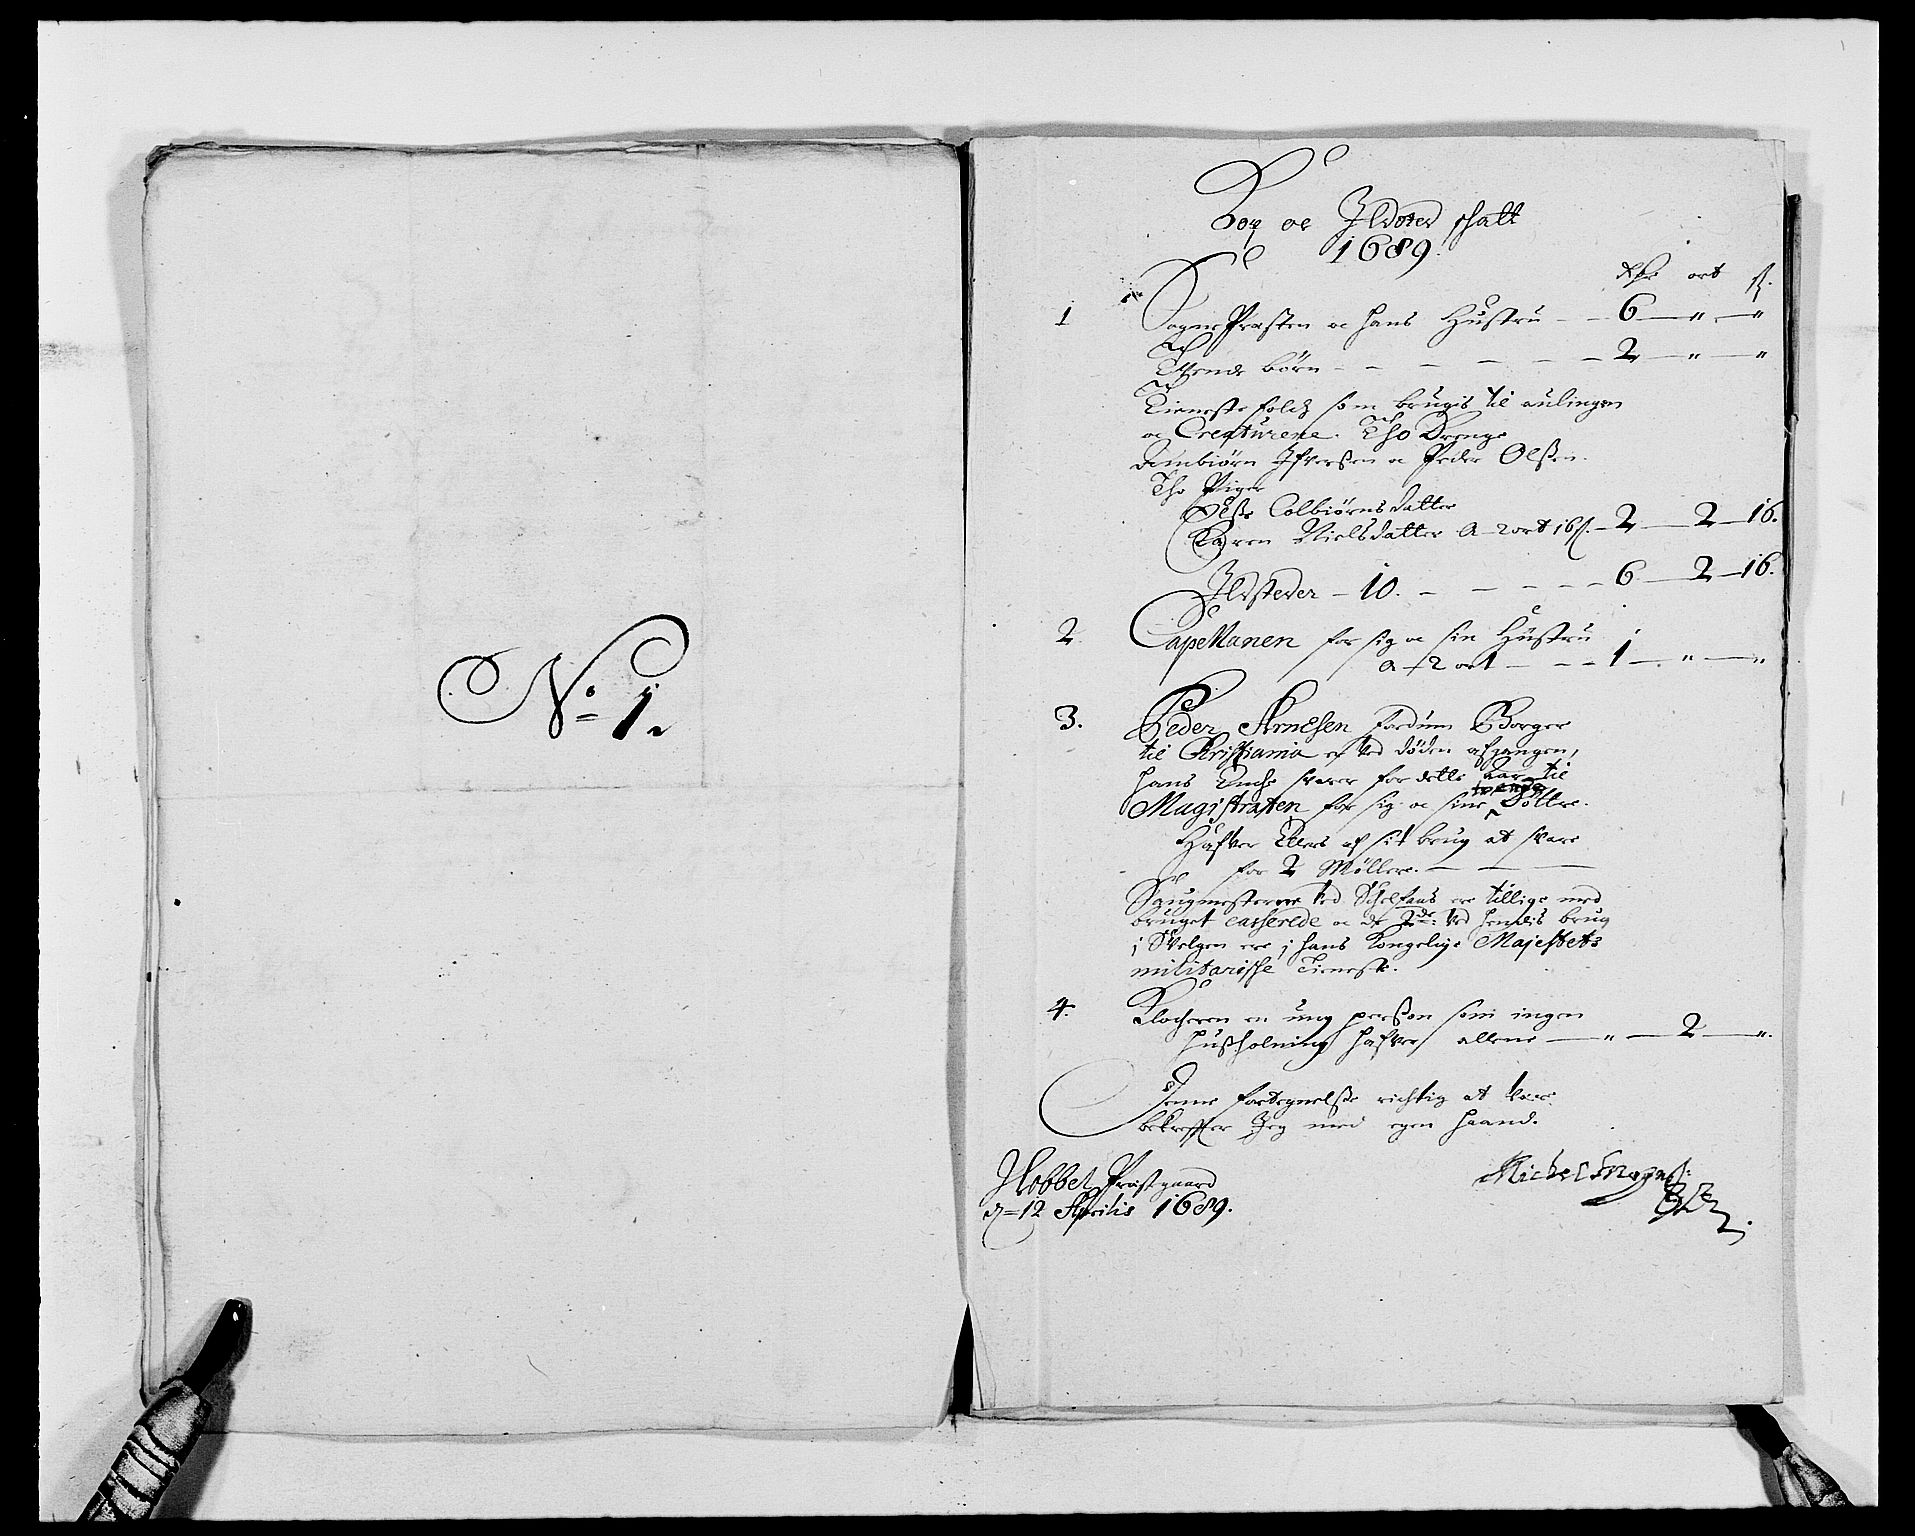 No 1.
Kop oc Ildsted skatt
1689.
Rdr ort ß.
1 Sogne Præsten oc hans Hustru - - 6 — " — "
Ottende børn - - - - - 2 — " — "
Tieneste folck som brugis til aulingen
oc Creaturene. Tho Drenge
Ambiørn Ifversen oc Peder Olßen.
Tho Piger
Olße Colbiørnsdatter
Karen Nielsdatter a 2 ort 16 ß. - 2 — 2 — 16.
Ildsteder - 10. - - - - 6 — 2 — 16.
2. Capellanen for sig oc sin Hustru
a 2 ort - - - 1 — " — "
3. Peder Arnesen fordum Borger
til Christiania er ved døden afgangen,
hans Enche svarer for dette Aar til
Magistraten for sig oc sine Døttre.
Hafver Ellers af sit brug at svare
for 2 Møllere. — — —
Saugmesterne ved Schelfaas ere tillige med
bruget casserede oc de 2de ved hendis brug
i Svelgen ere i hans Kongelige Majestets
militarische Tieneste.
4. Klocheren en ung person som ingen
hußholning hafver allene — " — 2 — ".
Denne fortegnelße richtig at være
bekreffter Jeg med egen haand.
Hobbel Præstgaard
d. 12 Aprilis 1689.
Michel